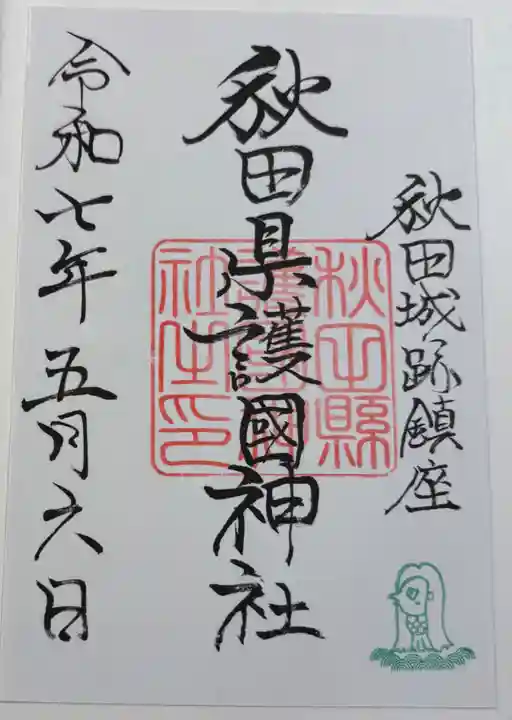 秋田城跡鎮座
秋田県護國神社
令和七年五月六日
秋田縣
護國神
社之印